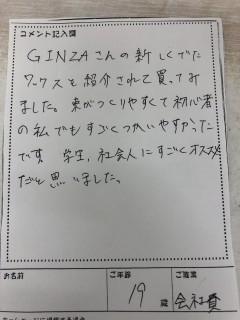 コメント記入欄
GINZAさんの新しくでた
ワックスを紹介されて買ってみ
ました。束がつくりやすくて初心者
の私でもすごくつかいやすかった
です 学生、社会人にすごくオススメ
だと思いました。
お名前
ご年齢
19歳
ご職業
会社員